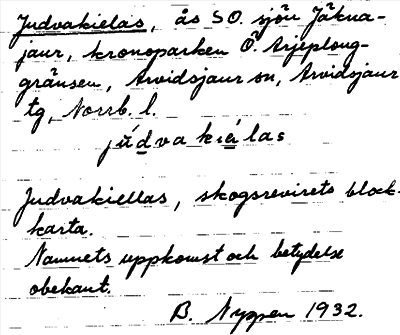 Judvakielas, ås SO. sjön Jäkna-
jaur, kronoparken Ö. Arjeploug-
gränsen, Arvidsjaur sn, Arvidsjaur
tg, Norrb. l.
júdvakiẹ́las
Judvakiellas, skogsrevirets block-
karta.
Namnets uppkomst och betydelse
obekant.
B. Nyppen 1932.